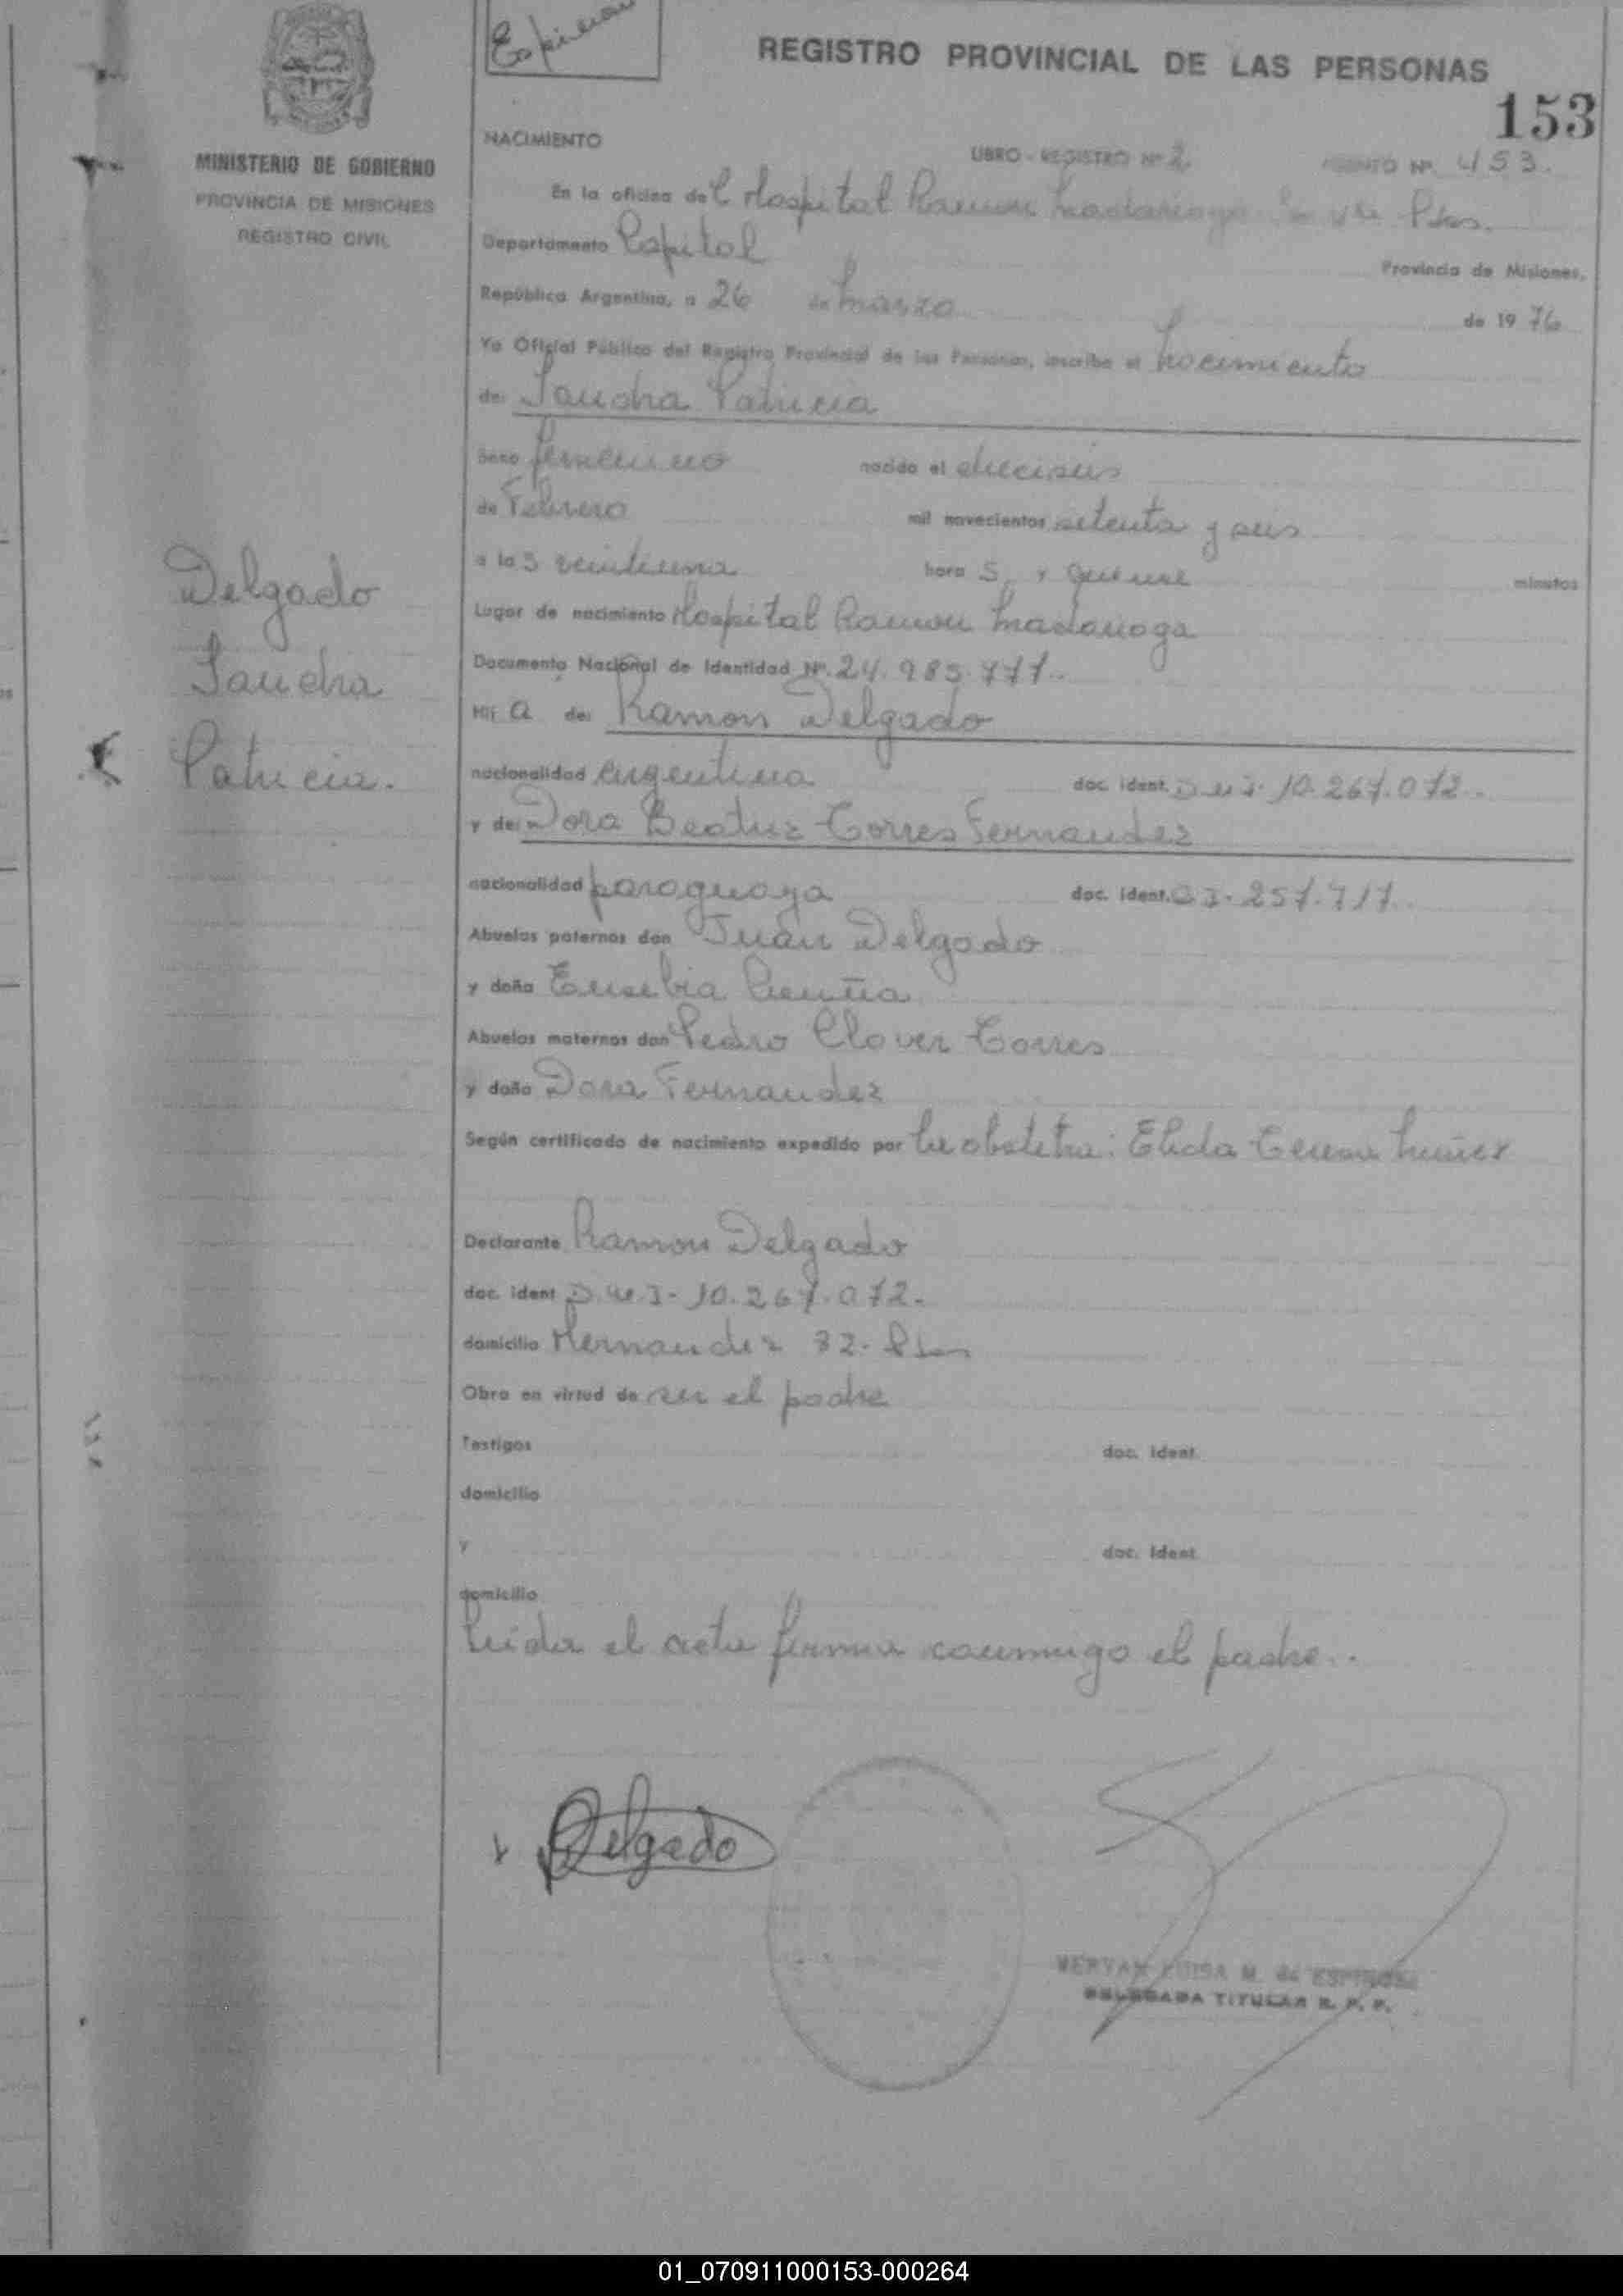 REGISTRO PROVINCIAL DE LAS PERSONAS
153
MINISTERIO DE GOBIERNO
PROVINCIA DE MISIONES
REGISTRO CIVIL
NACIMIENTO
LIBRO - REGISTRO Nº 2 ASIENTO Nº 453.
En la oficina del Hospital Ramon Madariaga Pdas.
Departamento Capital Provincia de Misiones,
República Argentina, a 26 de marzo de 1976
Yo Oficial Público del Registro Provincial de las Personas, inscribo el nacimiento
de: Sandra Patricia
Sexo femenino nacido el dieciseis
de Febrero mil novecientos setenta y seis
a las veintiuna horas y quince minutos
Lugar de nacimiento Hospital Ramon Madariaga
Documento Nacional de Identidad Nº. 24.985.777.
Delgado
Sandra
Patricia.
Hija de: Ramon Delgado
nacionalidad argentina doc. ident. D.N.I. 10.267.072.
y de: Dora Beatriz Torres Fernandez
nacionalidad paraguaya doc. ident. C.I. 257.717.
Abuelos paternos don Juan Delgado
y doña Eusebia
Abuelos maternos don Pedro Claver Torres
y doña Dora Fernandez
Según certificado de nacimiento expedido por la obstetra: Elida Nuñez
Declarante Ramon Delgado
doc. ident D.N.I- 10.267.072.
domicilio Hernandez 32- Pdas
Obra en virtud de ser el padre
Testigos doc. ident.
domicilio
y doc. ident.
domicilio
Leida el acta firma conmigo el padre..
Delgado
LUISA M. de ESPINOSA
DELEGADA TITULAR R. P. P.
01_070911000153-000264